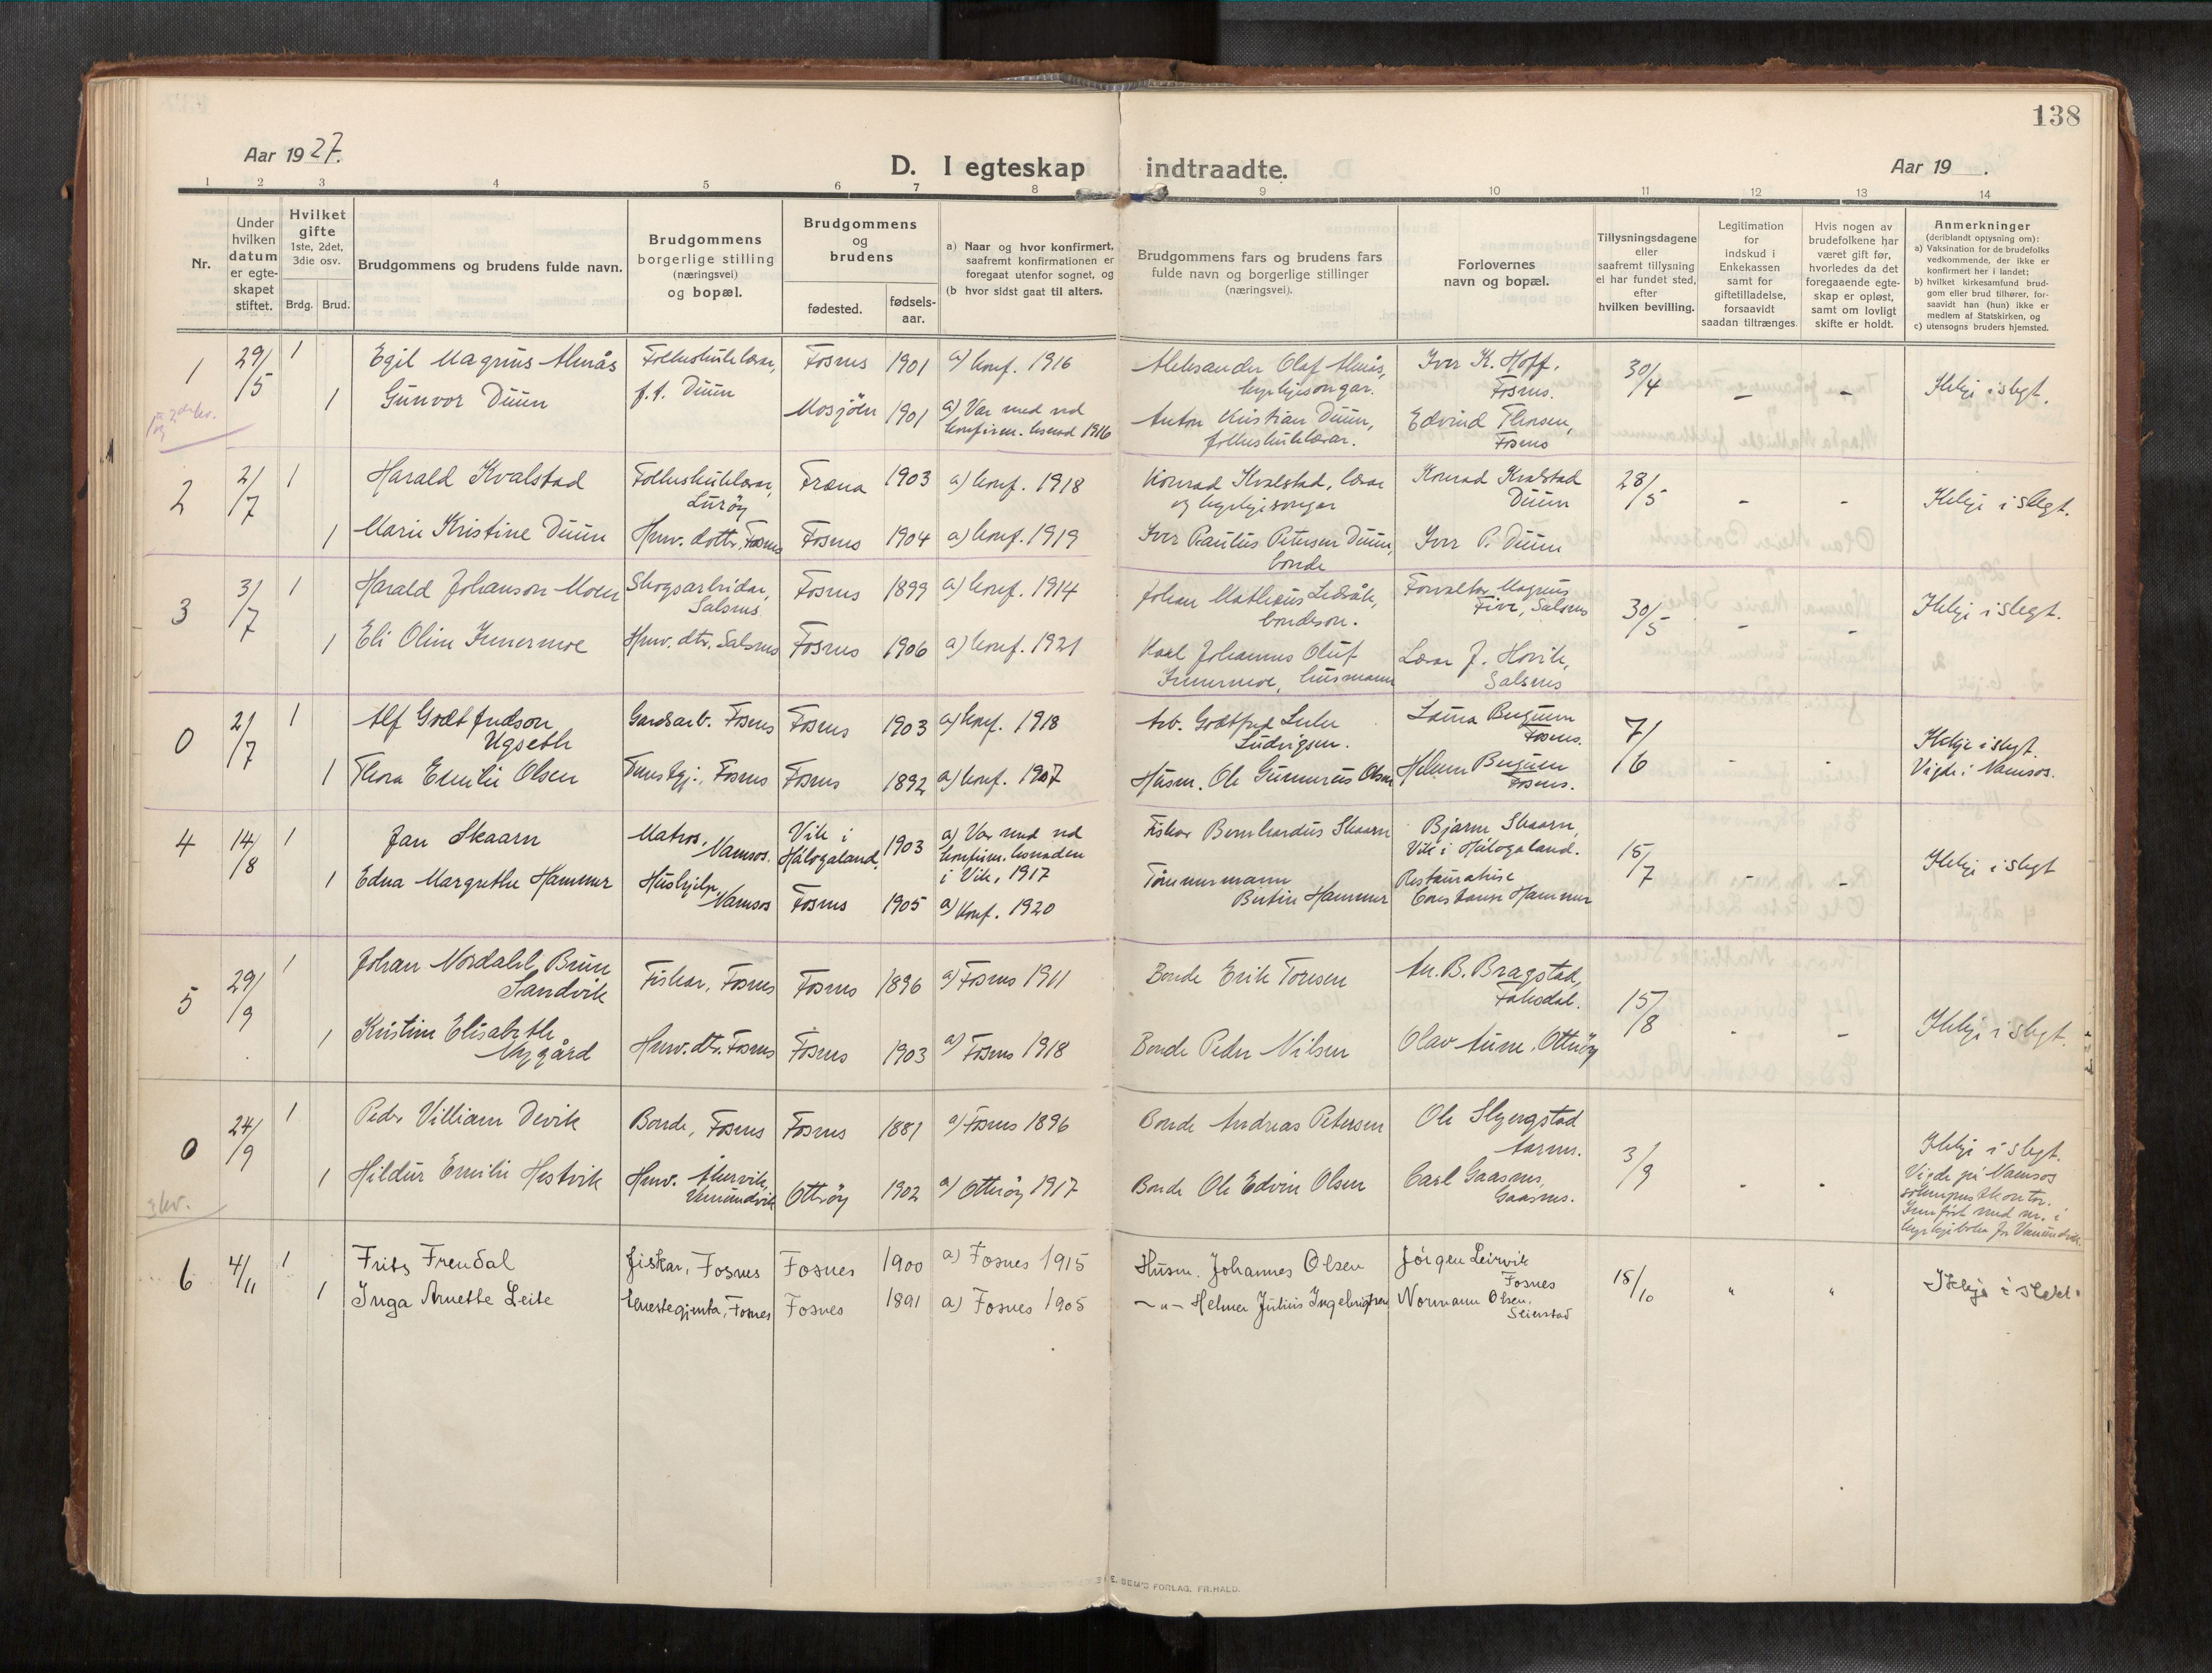 138
Aar 1927.
D. I egteskap indtraadte.
Aar 19 .
1 2 3 4 5 6 7 8 9 10 11 12 13 14
Nr.
Under hvilken datum er egteskapet stiftet.
Hvilket gifte 1ste, 2det, 3die osv.
Brdg. Brud.
Brudgommens og brudens fulde navn.
Brudgommens borgerlige stilling (næringsvei) og bopæl.
Brudgommens og brudens
fødested.
fødselsaar.
a) Naar og hvor konfirmert, saafremt konfirmationen er foregaat utenfor sognet, og
(b hvor sidst gaat til alters.
Brudgommens fars og brudens fars fulde navn og borgerlige stillinger (næringsvei).
Forlovernes navn og bopæl.
Tillysningsdagene eller saafremt tillysning ei har fundet sted, efter hvilken bevilling.
Legitimation for indskud i Enkekassen samt for giftetilladelse, forsaavidt saadan tiltrænges.
Hvis nogen av brudefolkene har været gift før, hvorledes da det foregaaende egteskap er opløst, samt om lovligt skifte er holdt.
Anmerkninger
(deriblandt opysning om):
a) Vaksination for de brudefolks vedkommende, der ikke er konfirmert her i landet;
b) hvilket kirkesamfund brudgom eller brud tilhører, forsaavidt han (hun) ikke er medlem af Statskirken, og
c) utensogns bruders hjemsted.
1 29/5 1 Egil Magnus Almås Folkeskulelærar, Fosnes 1901 a) konf. 1916 Aleksander Olaf Almås, kyrkjesongar. Iver K. Hoff, Fosnes. 30/4 - - Ikkje i slegt.
1 Gunvor Duun f.t. Duun Mosjöen 1901 a) Var med ved konfirm. lesnad 1916 Anton Kristian Duun, folkeskulelærar. Edvind Thorsen, Fosnes
2 2/7 1 Harald Kvalstad Folkeskulelærar, Luröy Fræna 1903 a) konf. 1918 Konrad Kvalstad, lærar og kyrkjesongar Konrad Kvalstad Duun 28/5 - - Ikkje i slegt.
1 Marie Kristine Duun Heimv. dotter, Fosnes Fosnes 1904 a) konf. 1919 Iver Paulus Petersen Duun, bonde Iver P. Duun
3 3/7 1 Harald Johanson Moen Skogsarbeidar, Salsnes Fosnes 1899 a) konf. 1914 Johan Mathæus Ledsåk, bondeson. Forvaltar Magnus Five, Salsnes 30/5 - - Ikkje i slegt.
1 Eli Oline Innermoe Heimv. dtr. Salsnes Fosnes 1906 a) konf. 1921 Karl Johannes Oluf Innermoe, husmann Lærar J. Hovik, Salsnes
0 2/7 1 Alf Godtfredson Ugseth Gardsarb. Fosnes Fosnes 1903 a) konf. 1918 Arb. Godtfred Luler Ludvigsen. Laura Bergum Fosnes. 7/6 - - Ikkje i slegt. Vigde i Namsos.
1 Thora Emilie Olsen Tenestgj., Fosnes Fosnes 1892 a) konf. 1907 Husm. Ole Gunnerius Olsen Helmer Bergum Fosnes.
4 14/8 1 Jan Skaarn Matros, Namsos. Vik i Hålogaland 1903 a) Var med ved konfirm. lesnaden i Vik, 1917 Fiskar Bernhardus Skaarn Bjarne Skaarn, Vik i Hålogaland. 15/7 - - Ikkje i slegt
1 Edna Margrethe Hammer Hushjelp, Namsos Fosnes 1905 a) konf. 1920 Tömmermann Bertin Hammer Restauratrise Constanse Hammer
5 29/9 1 Johan Nordahl Brun Sandvik Fiskar, Fosnes Fosnes 1896 a) Fosnes 1911 Bonde Erik Toresen An. B. Bragstad, Faksdal. 15/8 - - Ikkje i slegt.
1 Kristine Elisabeth Nygård Heimv. dtr. Fosnes Fosnes 1903 a) Fosnes 1918 Bonde Peder Nilsen Olav Aune, Otteröy
0 24/9 1 Peder Villiam Devik Bonde, Fosnes Fosnes 1881 a) Fosnes 1896 Bonde Andreas Petersen Ole Skjergstad Aarnes. 3/9 - - Ikkje i slegt. Vigde på Namsos
1 Hildur Emilie Hestvik Heimv. Vemundvik Otteröy 1902 a) Otteröy 1917 Bonde Ole Edvin Olsen Carl Gaasnes, Gaasnes. Innfört med nr. i kyrkjeboka for Vemundvik.
6 4/11 1 Frits Frendal Fiskar, Fosnes Fosnes 1900 a) Fosnes 1915 Husm. Johannes Olsen Jörgen Leirvik Fosnes 18/10 " " Ikkje i slekt.
1 Inga Anette Leite tenestegjenta, Fosnes Fosnes 1891 a) Fosnes 1905 -"- Helmer Julius Ingebrigtsen Normann Olsen, Seierstad
E. SEM'S FORLAG, FR.HALD.